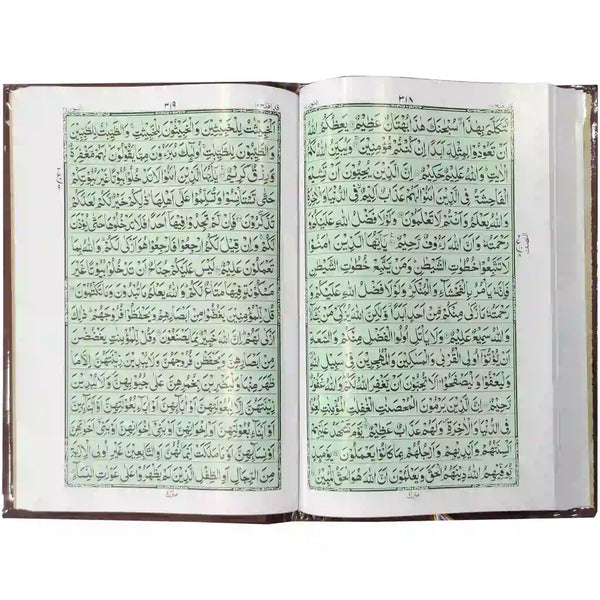 ٣١٨
نَتَكَلَّمَ بِهٰذَا سُبْحٰنَكَ هٰذَا بُهْتَانٌ عَظِيْمٌ يَعِظُكُمُ اللّٰهُ
اَنْ تَعُوْدُوْا لِمِثْلِهٖٓ اَبَدًا اِنْ كُنْتُمْ مُّؤْمِنِيْنَ وَيُبَيِّنُ اللّٰهُ لَكُمُ
الْاٰيٰتِ وَاللّٰهُ عَلِيْمٌ حَكِيْمٌ اِنَّ الَّذِيْنَ يُحِبُّوْنَ اَنْ تَشِيْعَ
الْفَاحِشَةُ فِي الَّذِيْنَ اٰمَنُوْا لَهُمْ عَذَابٌ اَلِيْمٌ فِي الدُّنْيَا وَ
الْاٰخِرَةِ وَاللّٰهُ يَعْلَمُ وَاَنْتُمْ لَا تَعْلَمُوْنَ وَلَوْلَا فَضْلُ اللّٰهِ عَلَيْكُمْ وَ
رَحْمَتُهٗ وَاَنَّ اللّٰهَ رَءُوْفٌ رَّحِيْمٌ يٰٓاَيُّهَا الَّذِيْنَ اٰمَنُوْا
لَا تَتَّبِعُوْا خُطُوٰتِ الشَّيْطٰنِ وَمَنْ يَّتَّبِعْ خُطُوٰتِ الشَّيْطٰنِ
فَاِنَّهٗ يَاْمُرُ بِالْفَحْشَآءِ وَالْمُنْكَرِ وَلَوْلَا فَضْلُ اللّٰهِ عَلَيْكُمْ وَ
رَحْمَتُهٗ مَا زَكٰى مِنْكُمْ مِّنْ اَحَدٍ اَبَدًا وَّلٰكِنَّ اللّٰهَ يُزَكِّيْ مَنْ يَّشَآءُ
وَاللّٰهُ سَمِيْعٌ عَلِيْمٌ وَلَا يَاْتَلِ اُولُوا الْفَضْلِ مِنْكُمْ وَالسَّعَةِ
اَنْ يُّؤْتُوْٓا اُولِي الْقُرْبٰى وَالْمَسٰكِيْنَ وَالْمُهٰجِرِيْنَ فِيْ سَبِيْلِ اللّٰهِ
وَلْيَعْفُوْا وَلْيَصْفَحُوْا اَلَا تُحِبُّوْنَ اَنْ يَّغْفِرَ اللّٰهُ لَكُمْ وَاللّٰهُ غَفُوْرٌ
رَّحِيْمٌ اِنَّ الَّذِيْنَ يَرْمُوْنَ الْمُحْصَنٰتِ الْغٰفِلٰتِ الْمُؤْمِنٰتِ لُعِنُوْا
فِي الدُّنْيَا وَالْاٰخِرَةِ وَلَهُمْ عَذَابٌ عَظِيْمٌ يَّوْمَ تَشْهَدُ عَلَيْهِمْ
اَلْسِنَتُهُمْ وَاَيْدِيْهِمْ وَاَرْجُلُهُمْ بِمَا كَانُوْا يَعْمَلُوْنَ يَوْمَئِذٍ
يُّوَفِّيْهِمُ اللّٰهُ دِيْنَهُمُ الْحَقَّ وَيَعْلَمُوْنَ اَنَّ اللّٰهَ هُوَ الْحَقُّ الْمُبِيْنُ
٣١٩
اَلْخَبِيْثٰتُ لِلْخَبِيْثِيْنَ وَالْخَبِيْثُوْنَ لِلْخَبِيْثٰتِ وَالطَّيِّبٰتُ لِلطَّيِّبِيْنَ
وَالطَّيِّبُوْنَ لِلطَّيِّبٰتِ اُولٰٓئِكَ مُبَرَّءُوْنَ مِمَّا يَقُوْلُوْنَ لَهُمْ مَّغْفِرَةٌ
وَّرِزْقٌ كَرِيْمٌ يٰٓاَيُّهَا الَّذِيْنَ اٰمَنُوْا لَا تَدْخُلُوْا بُيُوْتًا غَيْرَ بُيُوْتِكُمْ
حَتّٰى تَسْتَاْنِسُوْا وَتُسَلِّمُوْا عَلٰٓى اَهْلِهَا ذٰلِكُمْ خَيْرٌ لَّكُمْ لَعَلَّكُمْ
تَذَكَّرُوْنَ فَاِنْ لَّمْ تَجِدُوْا فِيْهَآ اَحَدًا فَلَا تَدْخُلُوْهَا حَتّٰى يُؤْذَنَ
لَكُمْ وَاِنْ قِيْلَ لَكُمُ ارْجِعُوْا فَارْجِعُوْا هُوَ اَزْكٰى لَكُمْ وَاللّٰهُ بِمَا
تَعْمَلُوْنَ عَلِيْمٌ لَيْسَ عَلَيْكُمْ جُنَاحٌ اَنْ تَدْخُلُوْا بُيُوْتًا غَيْرَ
مَسْكُوْنَةٍ فِيْهَا مَتَاعٌ لَّكُمْ وَاللّٰهُ يَعْلَمُ مَا تُبْدُوْنَ وَمَا تَكْتُمُوْنَ
قُلْ لِّلْمُؤْمِنِيْنَ يَغُضُّوْا مِنْ اَبْصَارِهِمْ وَيَحْفَظُوْا فُرُوْجَهُمْ ذٰلِكَ
اَزْكٰى لَهُمْ اِنَّ اللّٰهَ خَبِيْرٌ بِمَا يَصْنَعُوْنَ وَقُلْ لِّلْمُؤْمِنٰتِ يَغْضُضْنَ
مِنْ اَبْصَارِهِنَّ وَيَحْفَظْنَ فُرُوْجَهُنَّ وَلَا يُبْدِيْنَ زِيْنَتَهُنَّ اِلَّا مَا
ظَهَرَ مِنْهَا وَلْيَضْرِبْنَ بِخُمُرِهِنَّ عَلٰى جُيُوْبِهِنَّ وَلَا يُبْدِيْنَ
زِيْنَتَهُنَّ اِلَّا لِبُعُوْلَتِهِنَّ اَوْ اٰبَآئِهِنَّ اَوْ اٰبَآءِ بُعُوْلَتِهِنَّ اَوْ اَبْنَآئِهِنَّ
اَوْ اَبْنَآءِ بُعُوْلَتِهِنَّ اَوْ اِخْوَانِهِنَّ اَوْ بَنِيْٓ اِخْوَانِهِنَّ اَوْ بَنِيْٓ اَخَوٰتِهِنَّ
اَوْ نِسَآئِهِنَّ اَوْ مَا مَلَكَتْ اَيْمَانُهُنَّ اَوِ التّٰبِعِيْنَ غَيْرِ اُولِي الْاِرْبَةِ
مِنَ الرِّجَالِ اَوِ الطِّفْلِ الَّذِيْنَ لَمْ يَظْهَرُوْا عَلٰى عَوْرٰتِ النِّسَآءِ